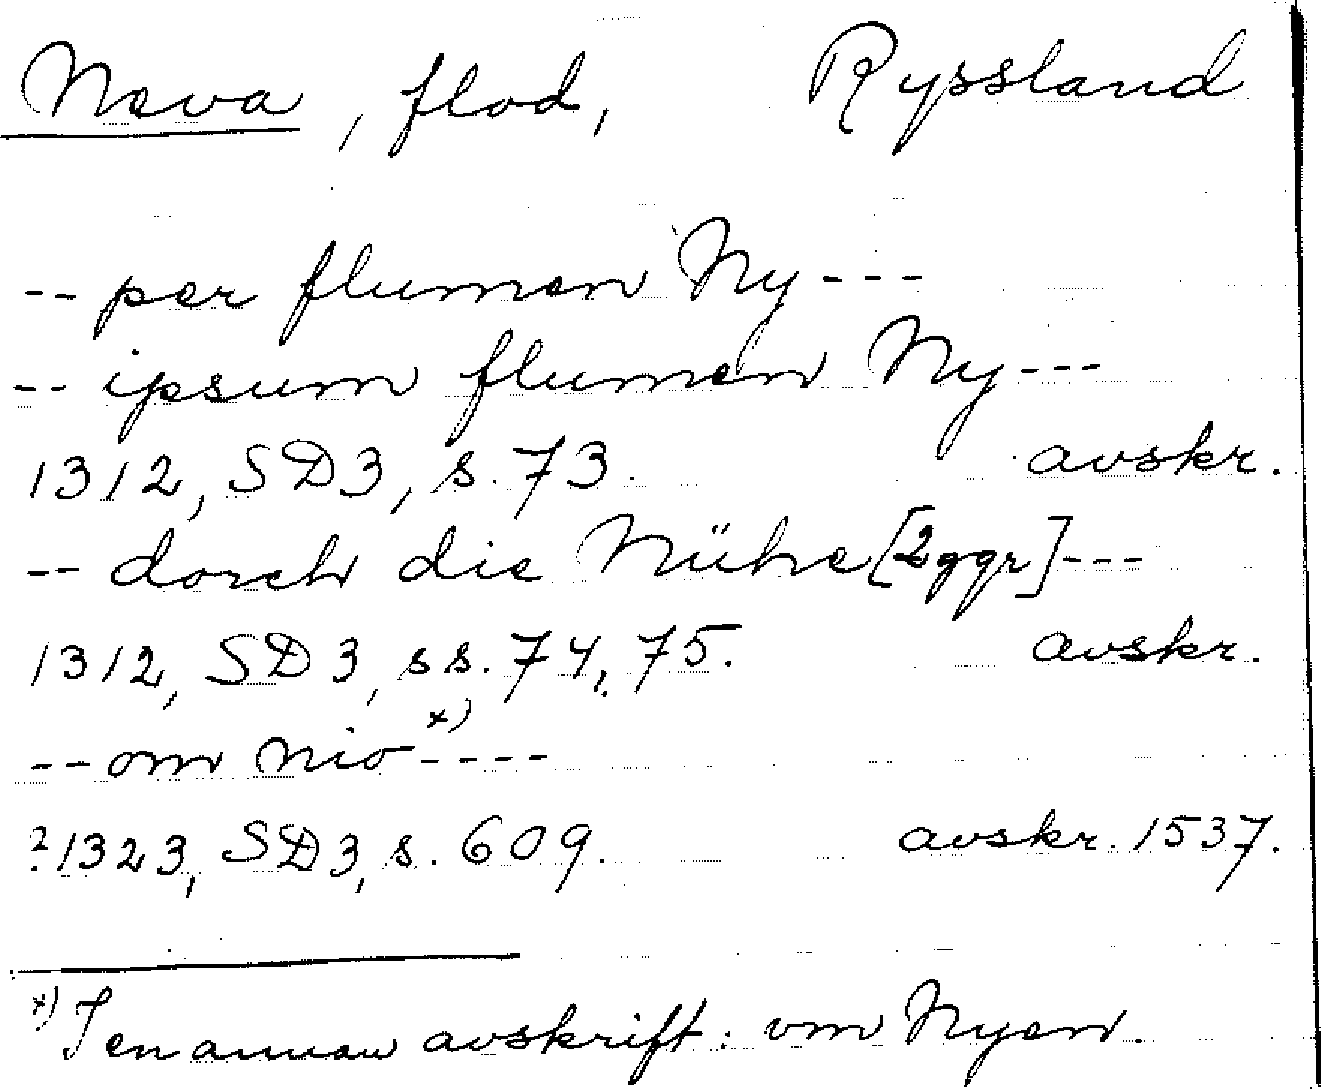 Neva, flod, Ryssland
-- per flumen Ny ---
-- ipsum flumen Ny ---
1312, SD3, s. 73. avskr.
-- dorch die Nühe [2ggr] ---
1312, SD3, ss. 74, 75. avskr.
-- om nio x) ----
?1323, SD3, s. 609. avskr. 1537.
x) I en annan avskrift: om Nyen.